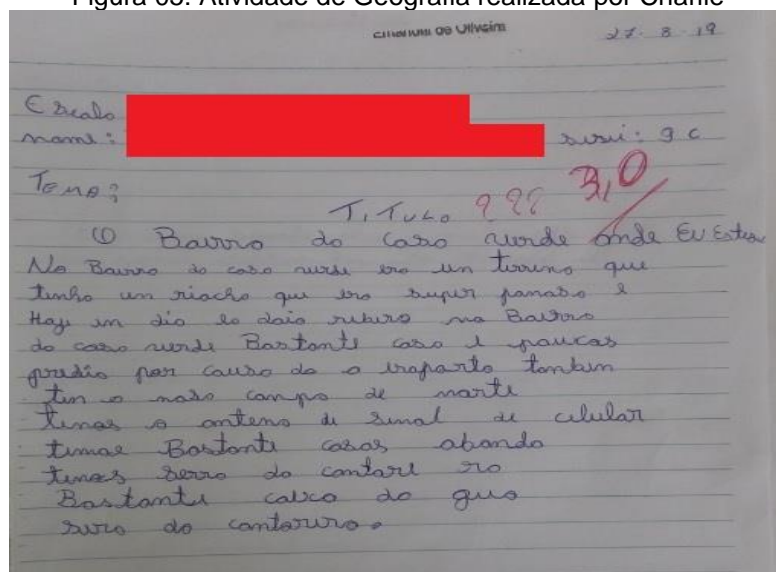 Figura 03: Atividade de Geografia realizada por Charlie
de Oliveira
27. 8 19
Escala
name: serei: 9 c
Tema:
TiTuLo ??? 3,0
O Bairro do caso verde onde Eu Estou
No Bairro do caso verde ero um terreno que
tinho un riacho que ero super famaso e
Haje in dio do Bairro
do caso verde Bastante caso e paucas
predio par causo do o iraparto tanbem
tin o naso campo de marte
temas o anteno de sinal de celular
temae Bastante casas abando
temas serro do cantare ro
Bastante do
do cantareiro.